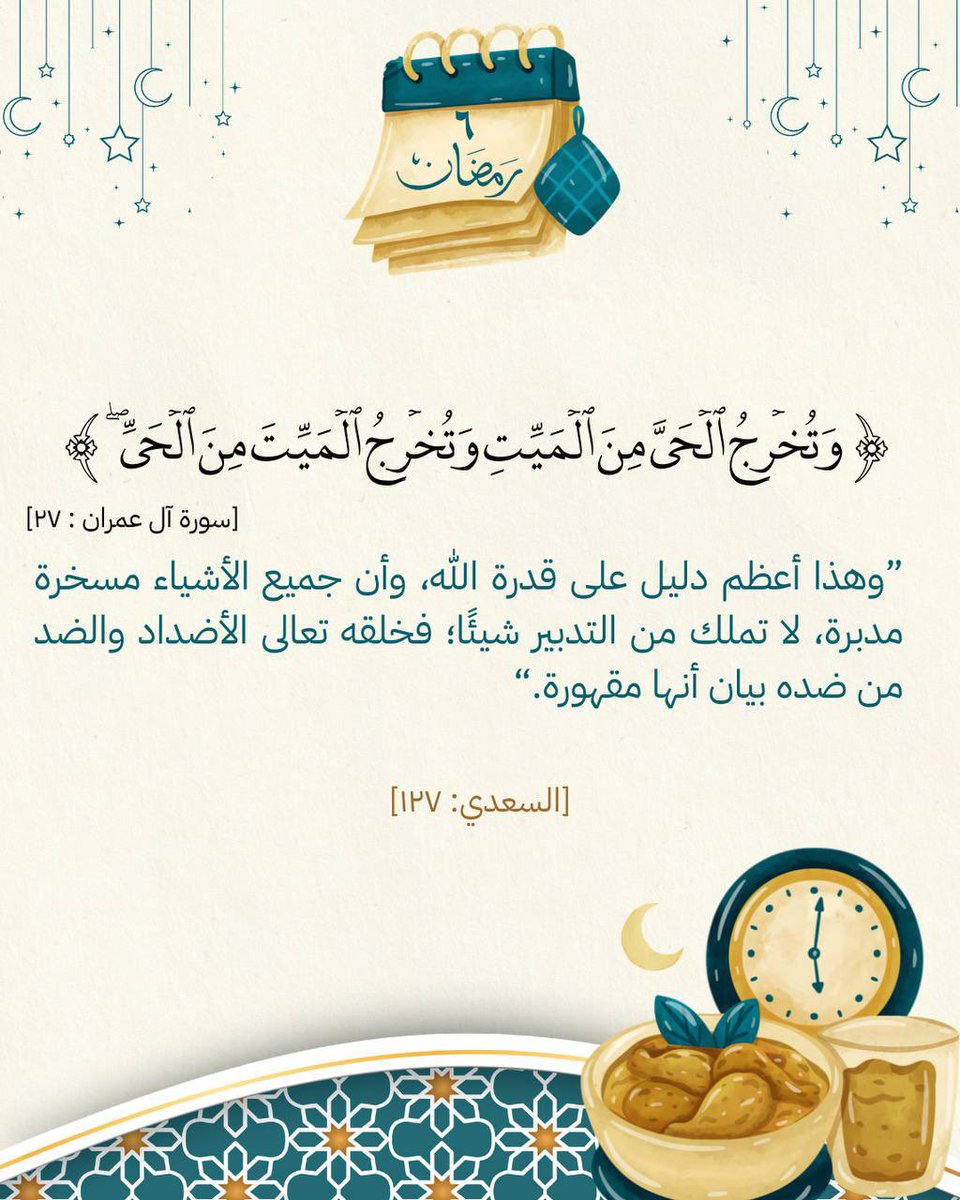 ٦
رمضان
﴿ وَتُخْرِجُ ٱلْحَىَّ مِنَ ٱلْمَيِّتِ وَتُخْرِجُ ٱلْمَيِّتَ مِنَ ٱلْحَىِّ ۖ ﴾
[سورة آل عمران : ٢٧]
”وهذا أعظم دليل على قدرة الله، وأن جميع الأشياء مسخرة
مدبرة، لا تملك من التدبير شيئًا؛ فخلقه تعالى الأضداد والضد
من ضده بيان أنها مقهورة.“
[السعدي: ١٢٧]